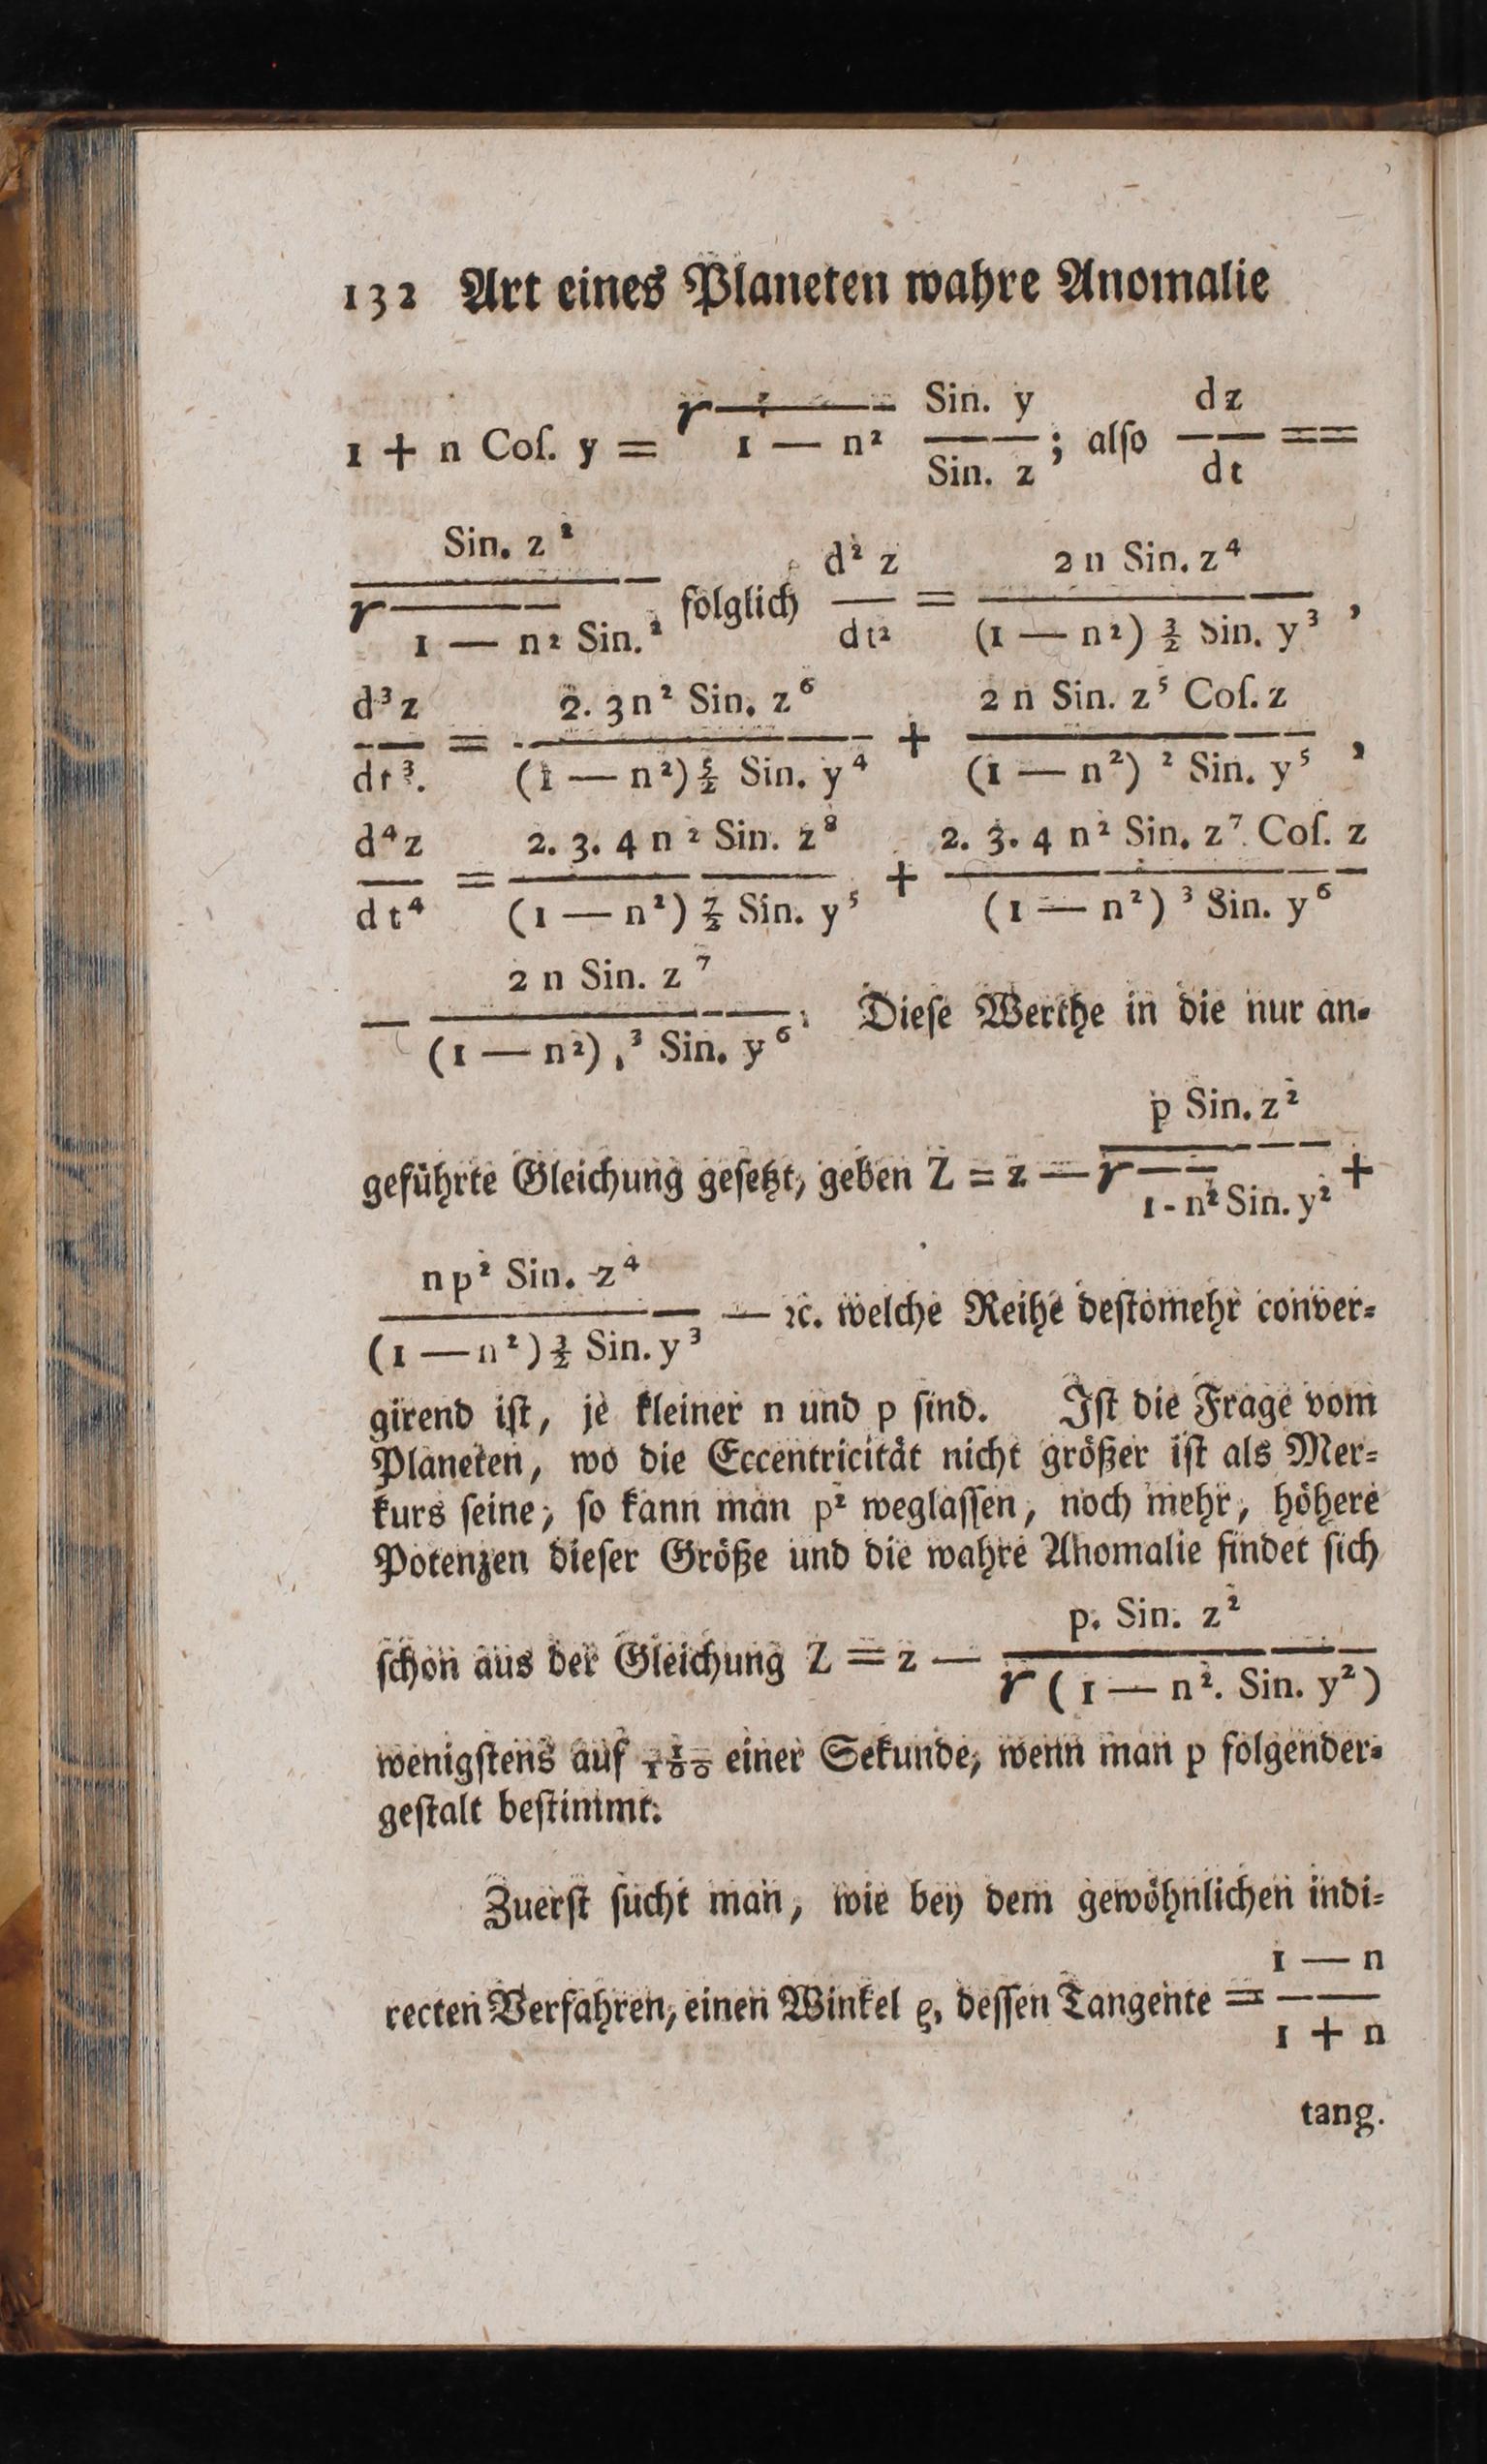 132 Art eines Planeten wahre Anomalie
1 + n Coſ. y = √(1 — n²) Sin. y / Sin. z ; alſo dz / dt ==
Sin. z² / √(1 — n²) Sin.² folglich d² z / dt² = 2 n Sin. z⁴ / (1 — n²) 3/2 Sin. y³ ,
d³z / dt³. = 2. 3 n² Sin. z⁶ / (1 — n²) 5/2 Sin. y⁴ + 2 n Sin. z⁵ Coſ. z / (1 — n²) ² Sin. y⁵ ,
d⁴z / dt⁴ = 2. 3. 4 n ² Sin. z⁸ / (1 — n²) 7/2 Sin. y⁵ + 2. 3. 4 n² Sin. z⁷ Coſ. z / (1 — n²) ³ Sin. y⁶
— 2 n Sin. z⁷ / (1 — n²) ,³ Sin. y⁶ . Dieſe Werthe in die nur an-
geführte Gleichung geſetzt, geben Z = z — p Sin. z² / √(1 - n²) Sin. y² +
n p² Sin. z⁴ / (1 — n²) 3/2 Sin. y³ — ꝛc. welche Reihe deſtomehr conver-
girend iſt, je kleiner n und p ſind. Iſt die Frage vom
Planeten, wo die Eccentricität nicht größer iſt als Mer-
kurs ſeine, ſo kann man p² weglaſſen, noch mehr, höhere
Potenzen dieſer Größe und die wahre Anomalie findet ſich
ſchon aus der Gleichung Z = z — p. Sin. z² / √ ( 1 — n². Sin. y²)
wenigſtens auf 1/100 einer Sekunde, wenn man p folgender-
geſtalt beſtimmt.
Zuerſt ſucht man, wie bey dem gewöhnlichen indi-
recten Verfahren, einen Winkel ϱ, deſſen Tangente = 1 — n / 1 + n
tang.